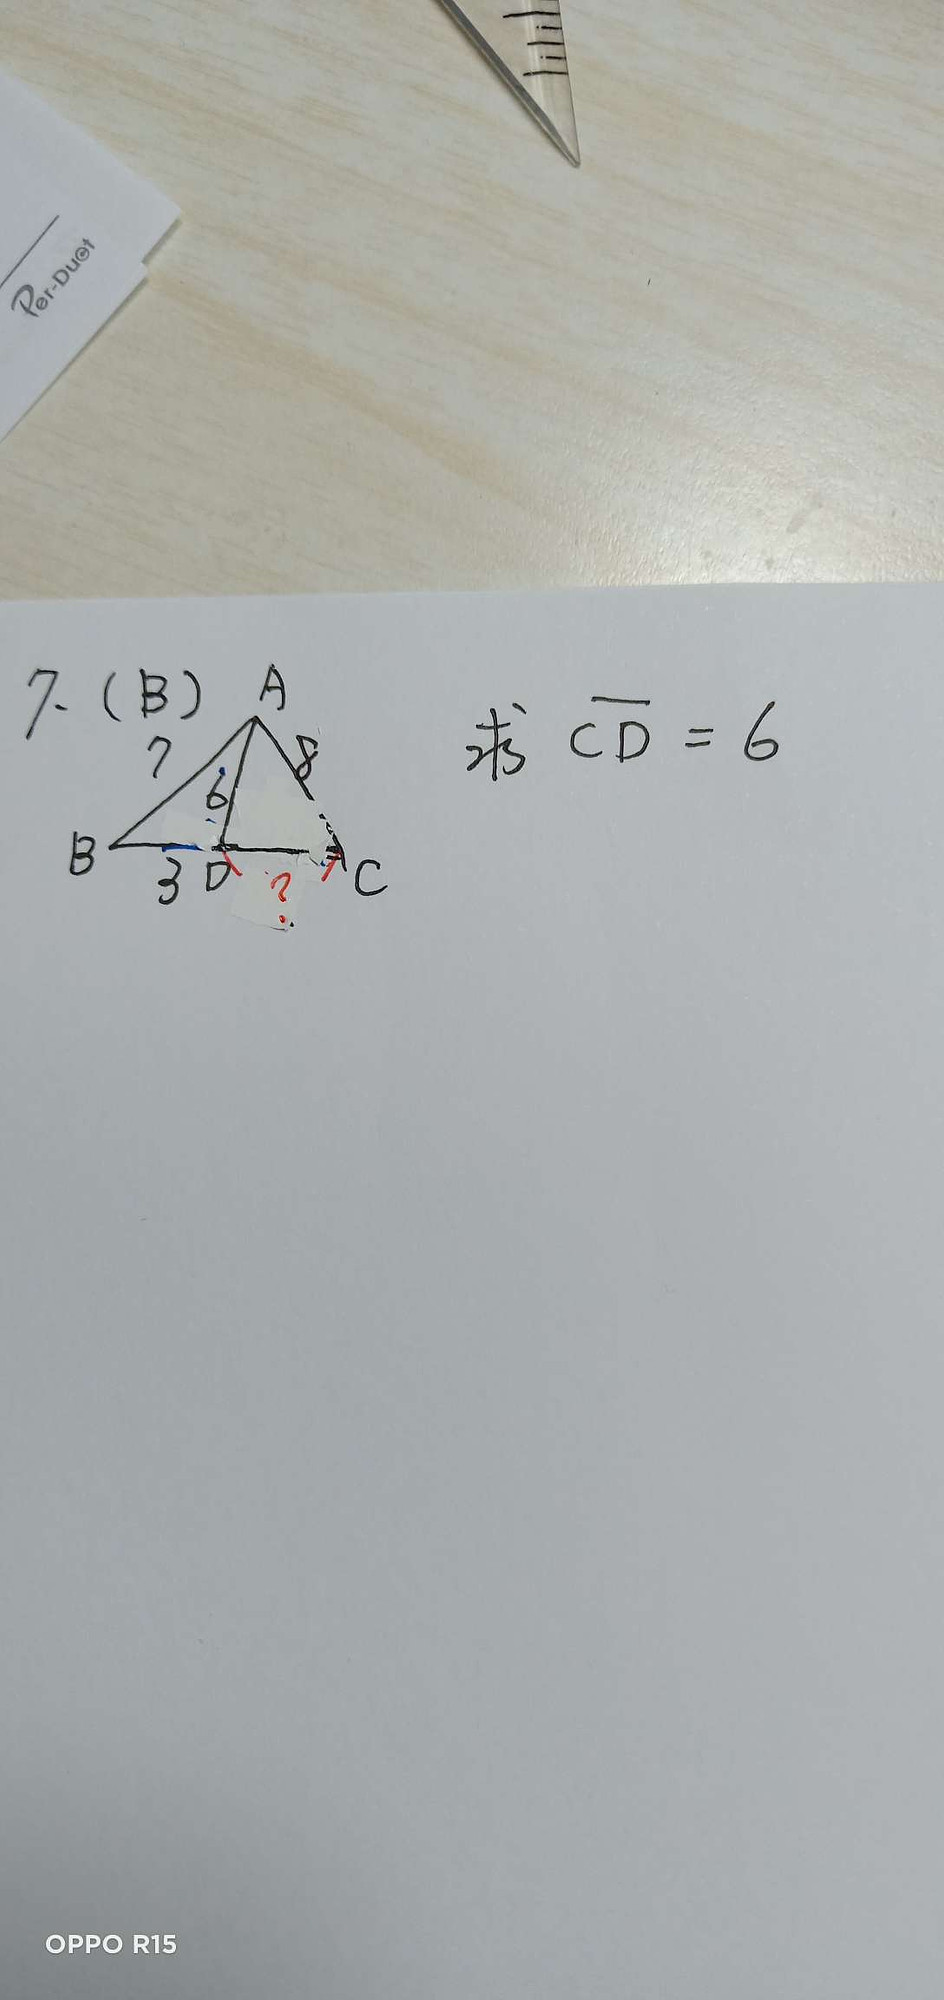 Per-Duet
7. (B) A
求 CD = 6
7
8
6
B
3
D
?
C
OPPO R15